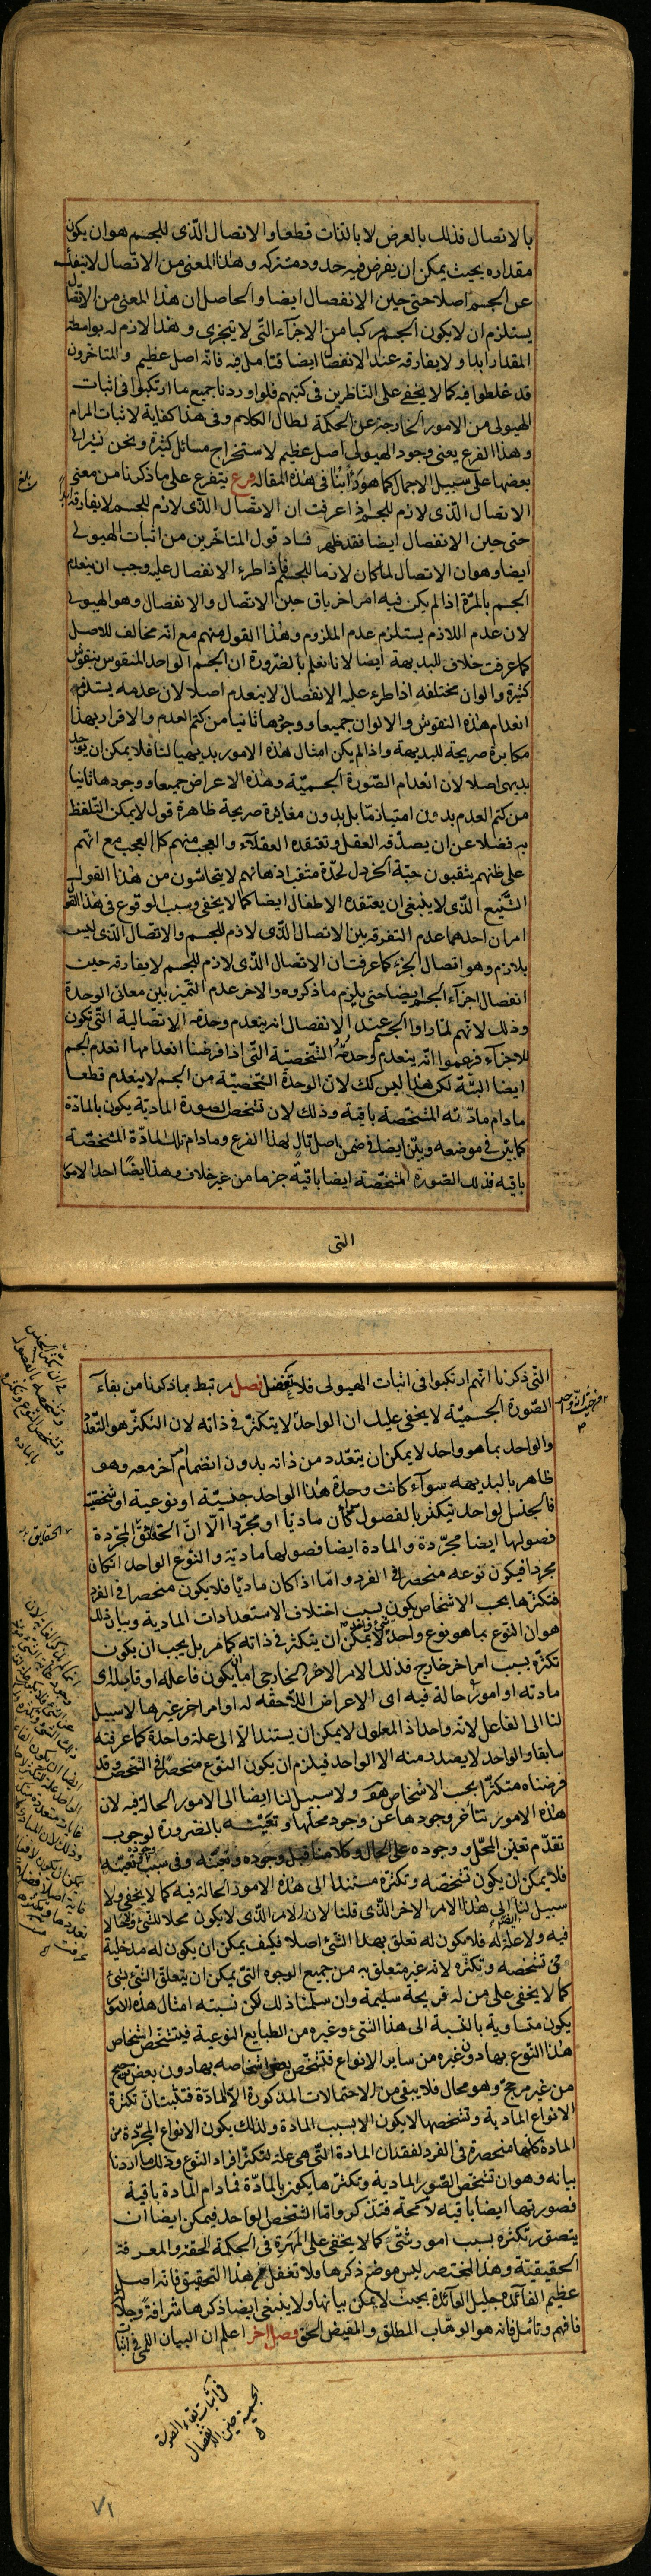 بالاتصال فذلك بالعرض لا بالذات قطعا والاتصال الذى للجسم هو ان يكون
مقداره بحيث يمكن ان يفرض فيه حدود مشتركه وهذا المعنى من الاتصال لا ينفك
عن الجسم اصلا حتى حين الانفصال ايضا والحاصل ان هذا المعنى من الاتصال
يستلزم ان لا يكون الجسم مركبا من الاجزآء التى لا يتجزى وهذا لازم له بواسطة
المقدار ابدا ولا يفارقه عند الانفصال ايضا فتامل فيه فانه اصل عظيم والمتاخرون
قد غلطوا فيه كما لا يخفى على الناظرين فى كتبهم فلو اوردنا جميع ما ارتكبوا فى اثبات
الهيولى من الامور الخارجة عن الحكمة لطال الكلام وفى هذا كفاية لاثبات المرام
وهذا الفرع يعنى وجود الهيولى اصل عظيم لاستخراج مسائل كثيرة ونحن نشير الى
بعضها على سبيل الاجمال كما هو دأبنا فى هذه المقاله فرع يتفرع على ما ذكرنا من معنى
الاتصال الذى لازم للجسم اذا عرفت ان الاتصال الذى لازم للجسم لا يفارقه
حتى حين الانفصال ايضا فقد ظهر فساد قول المتاخرين من اثبات الهيولى
ايضا وهو ان الاتصال لما كان لازما للجسم فاذا طرء الانفصال عليه وجب ان ينعدم
الجسم بالمرة اذا لم يكن فيه امر اخر باق حين الاتصال والانفصال وهو الهيولى
لان عدم اللازم يستلزم عدم الملزوم وهذا القول منهم مع انه مخالف للاصل
كما عرفت خلاف للبديهة ايضا لانا نعلم بالضرورة ان الجسم الواحد المنقوس بنقوش
كثيرة والوان مختلفه اذا طرء عليه الانفصال لا ينعدم اصلا لان عدمه يستلزم
انعدام هذه النقوش والالوان جميعا ووجودها ثانيا من كتم العدم والاقرار بهذا
مكابرة صريحة للبديهة واذا لم يكن امثال هذه الامور بديهيا لنا فلا يمكن ان يوجد
بديهى اصلا لان انعدام الصورة الجسمية وهذه الاعراض جميعا ووجودها ثانيا
من كتم العدم بدون امتياز ما بل بدون مغايرة صريحة ظاهرة قول لا يمكن التلفظ
به فضلا عن ان يصدقه العقل وتعتقده العقلآء والعجب منهم كل العجب مع انهم
على ظنهم يثقبون حبة الخردل لحدة مثقب اذهانهم لا يتحاشون من هذا القول
الشنيع الذى لا ينبغى ان يعتقده الاطفال ايضا كما لا يخفى وسبب الوقوع فى هذا القول
امران احدهما عدم التفرقه بين الاتصال الذى لازم للجسم والاتصال الذى ليس
بلازم وهو اتصال الجزء كما عرفت ان الاتصال الذى لازم للجسم لا يفارقه حين
انفصال اجزآء الجسم ايضا حتى يلزم ما ذكروه والاخر عدم التميز بين معانى الوحدة
وذلك لانهم لما راوا الجسم عند الانفصال انه ينعدم وحدته الاتصالية التى تكون
للاجزآء فزعموا انه ينعدم وحدته الشخصية التى اذا فرضنا انعدامها انعدم الجسم
ايضا البتة لكن هذا ليس كك لان الوحدة الشخصية من الجسم لا ينعدم قطعا
مادام مادته المشخصة باقية وذلك لان تشخص الصورة المادية يكون بالمادة
كما بين فى موضعه وبين ايضا فى ضمن اصل تال لهذا الفرع ومادام تلك المادة المشخصة
باقيه فذلك الصورة المشخصة ايضا باقية جزما من غير خلاف وهذا ايضا احد الامور
التى
التى ذكرنا انهم ارتكبوا فى اثبات الهيولى فلا تغفل فصل مرتبط بما ذكرنا من بقآء
الصورة الجسمية لا يخفى عليك ان الواحد لا يتكثر فى ذاته لان التكثر هو التعدد
والواحد بما هو واحد لا يمكن ان يتعدد من ذاته بدون انضمام امر اخر معه وهو
ظاهر بالبديهه سوآء كانت وحدة هذا الواحد جنسية او نوعية او شخصية
فالجنس لواحد تيكثر بالفصول سوآء كان ماديا او مجردا الا ان الحقايق المجردة
فصولها ايضا مجردة والمادة ايضا فصولها مادية والنوع الواحد ان كان
مجردا فيكون نوعه منحصرا فى الفرد واما اذا كان ماديا فلا يكون منحصرا فى الفرد
فتكثرها بحب الاشخاص يكون بسبب اختلاف الاستعدادات المادية وبيان ذلك
هو ان النوع بما هو نوع واحد لا يمكن ان يتكثر فى ذاته كما مر بل يجب ان يكون
تكثره بسبب امر اخر خارج فذلك الامر الاخر الخارجى اما ان يكون فاعله او قابله اى
مادته او امورا حالة فيه اى الاعراض اللاحقه له او امر اخر غيرها لا سبيل
لنا الى الفاعل لانه واحد اذ المعلول لا يمكن ان يستند الا الى علة واحدة كما عرفته
سابقا والواحد لا يصدر منه الا الواحد فيلزم ان يكون النوع منحصرا فى الشخص وقد
فرضناه متكثرا بحب الاشخاص هف ولا سبيل لنا ايضا الى الامور الحالة فيه لان
هذه الامور تتاخر وجودها عن وجود محلها وتعينه بالضرورة لوجوب
تقدم تعين المحل ووجوده على الحال وكلامنا قبل وجوده وتعينه وفى سبب تعينه
فلا يمكن ان يكون تشخصه وتكثره مستندا الى هذه الامور الحالة فيه كما لا يخفى ولا
سبيل لنا الى هذا الامر الاخر الذى قلنا لان الامر الذى لا يكون محلا للشئ ولا حالا
فيه ولا علة له فلا يكون له تعلق بهذا الشئ اصلا فكيف يمكن ان يكون له مدخلية
فى تشخصه وتكثره لانه غير متعلق به من جميع الوجوه التى يمكن ان يتعلق الشئ بشئ
كما لا يخفى على من له قريحة سليمة وان سلمنا ذلك لكن نسبته امثال هذه الامور
يكون متساوية بالنسبة الى هذا الشئ وغيره من الطبايع النوعية فيتشخص اشخاص
هذا النوع بها دون غيره من ساير الانواع فتشخص بعض اشخاصه بها دون بعض ترجيح
من غير مرجح وهو محال فلا يبقى من الاحتمالات المذكورة الا المادة فتثبت ان تكثرة
الانواع المادية وتشخصها لا يكون الا بسبب المادة ولذلك يكون الانواع المجردة من
المادة كلها منحصرة فى الفرد لفقدان المادة التى هى علة لتكثر افراد النوع وذلك ما اردنا
بيانه وهو ان تشخص الصور المادية وتكثرها يكون بالمادة فمادام المادة باقية
فصورتها ايضا باقيه لا محة فتذكر واما الشخص الواحد فيمكن ايضا ان
يتصور تكثره بسبب امور شتى كما لا يخفى على المهرة فى الحكمة الحقة والمعرفة
الحقيقية وهذا المختصر ليس موضع ذكرها ولا تغفل عن هذا التحقيق فانه اصل
عظيم الفآئدة جليل العآئدة بحيث لا يمكن بيانها ولا ينبغى ايضا ذكرها شرافة وجلالة
فافهم وتامل فانه هو الوهاب المطلق والمفيض الحق فصل اخر اعلم ان البيان اللمى فى اثبات
فى اثبات بقاء الصورة
الجسمية حين الانفصال
الحقايق
٧١